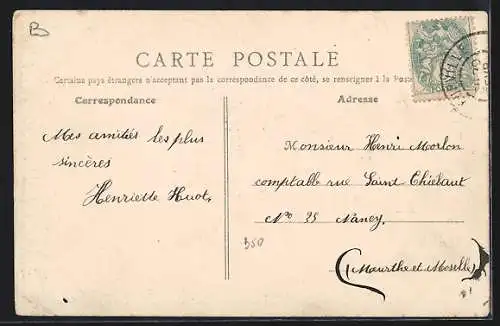 B
CARTE POSTALE
Certains pays étrangers n'acceptant pas la correspondance de ce côté, se renseigner à la Poste
Correspondance
Adresse
Mes amitiés les plus
sincères
Henriette Huot
Monsieur Henri Morlon
comptable rue Saint Thiébaut
No 25 Nancy
(Meurthe et Moselle)
350